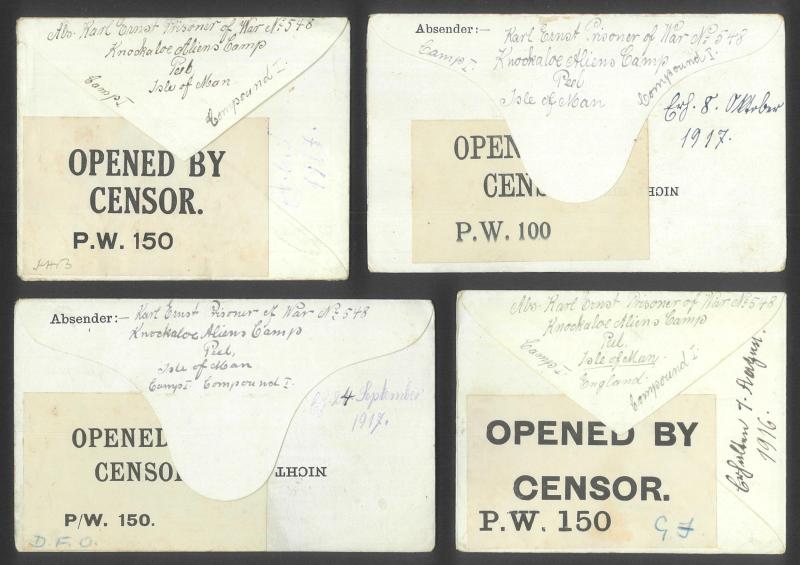 Abs. Karl Ernst Prisoner of War No. 548
Knockaloe Aliens Camp
Peel,
Isle of Man.
Camp I.
Compound I.
OPENED BY
CENSOR.
P.W. 150
Absender:—
Karl Ernst Prisoner of War No. 548
Knockaloe Aliens Camp
Peel
Isle of Man
Camp I.
Compound I.
Erh. 8. Oktober
1917.
OPEN
CENS
P.W. 100
NICHT
Absender:—
Karl Ernst Prisoner of War No. 548
Knockaloe Aliens Camp
Peel,
Isle of Man
Camp I. Compound I.
24 September
1917.
OPENED
CENSO
P/W. 150.
NICHT
D.F.O.
Abs. Karl Ernst Prisoner of War No. 548
Knockaloe Aliens Camp
Peel.
Isle of Man.
England.
Camp I.
Compound I.
Erhalten 7. August.
1916.
OPENED BY
CENSOR.
P.W. 150